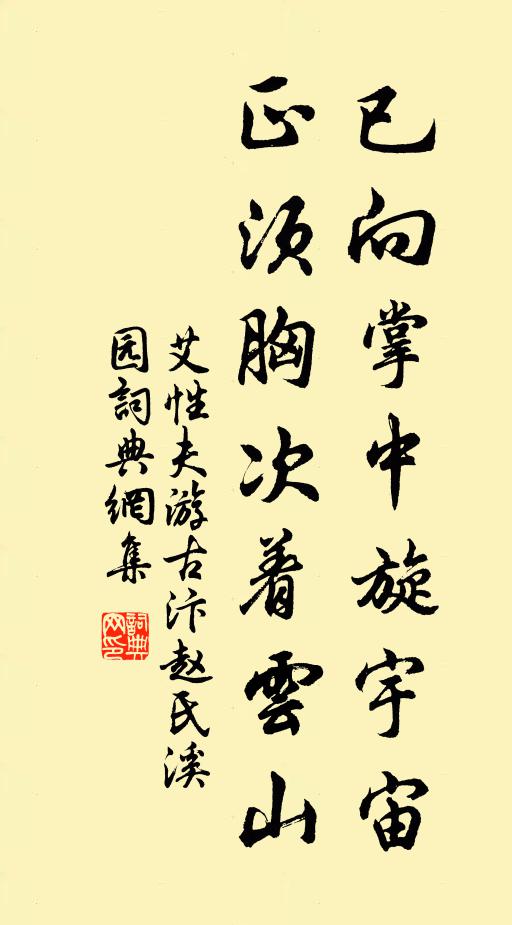 已向掌中旋宇宙
正须胸次着雲山
艾性夫游古汴赵氏溪
园詞典網集
詞典
网印